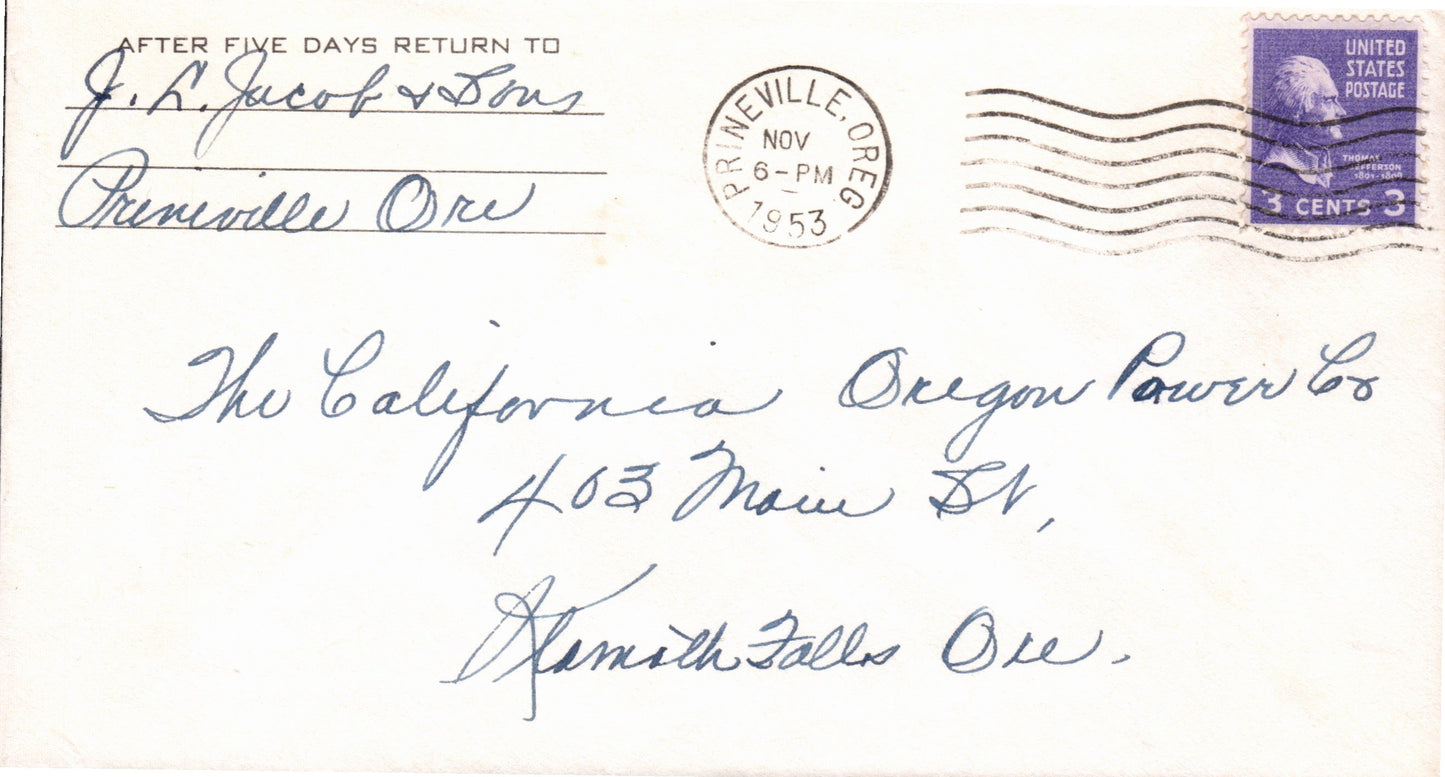 AFTER FIVE DAYS RETURN TO
J. L. Jacob & Sons
Prineville Ore
PRINEVILLE, OREG.
NOV
6-PM
1953
UNITED
STATES
POSTAGE
THOMAS
JEFFERSON
1801-1809
3 CENTS 3
The California Oregon Power Co
403 Main St,
Klamath Falls Ore.